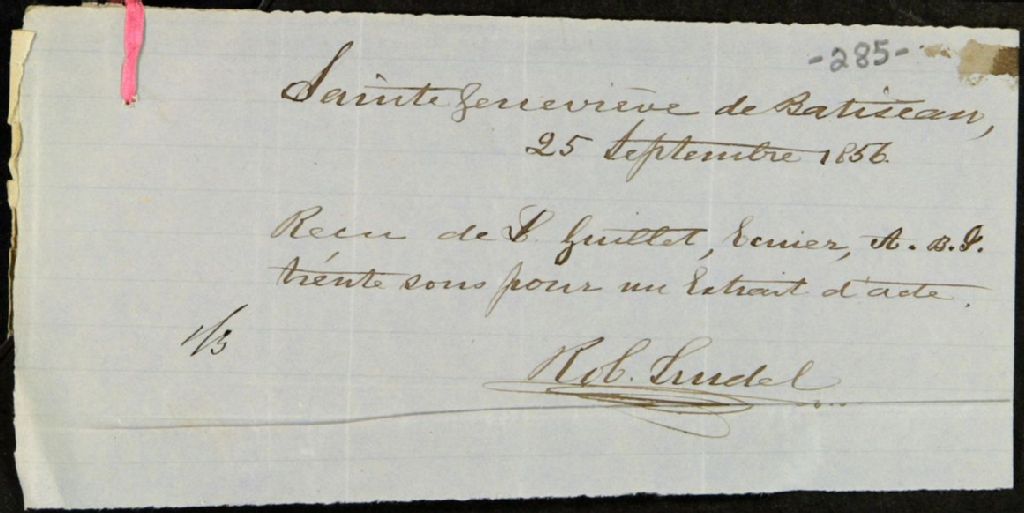 -285-
Sainte Geneviève de Batiscan,
25 Septembre 1856
Recu de L. Guillet, Ecuier, A. B. J.
trente sous pour un Extrait d'acte.
1/3
Rob. Trudel